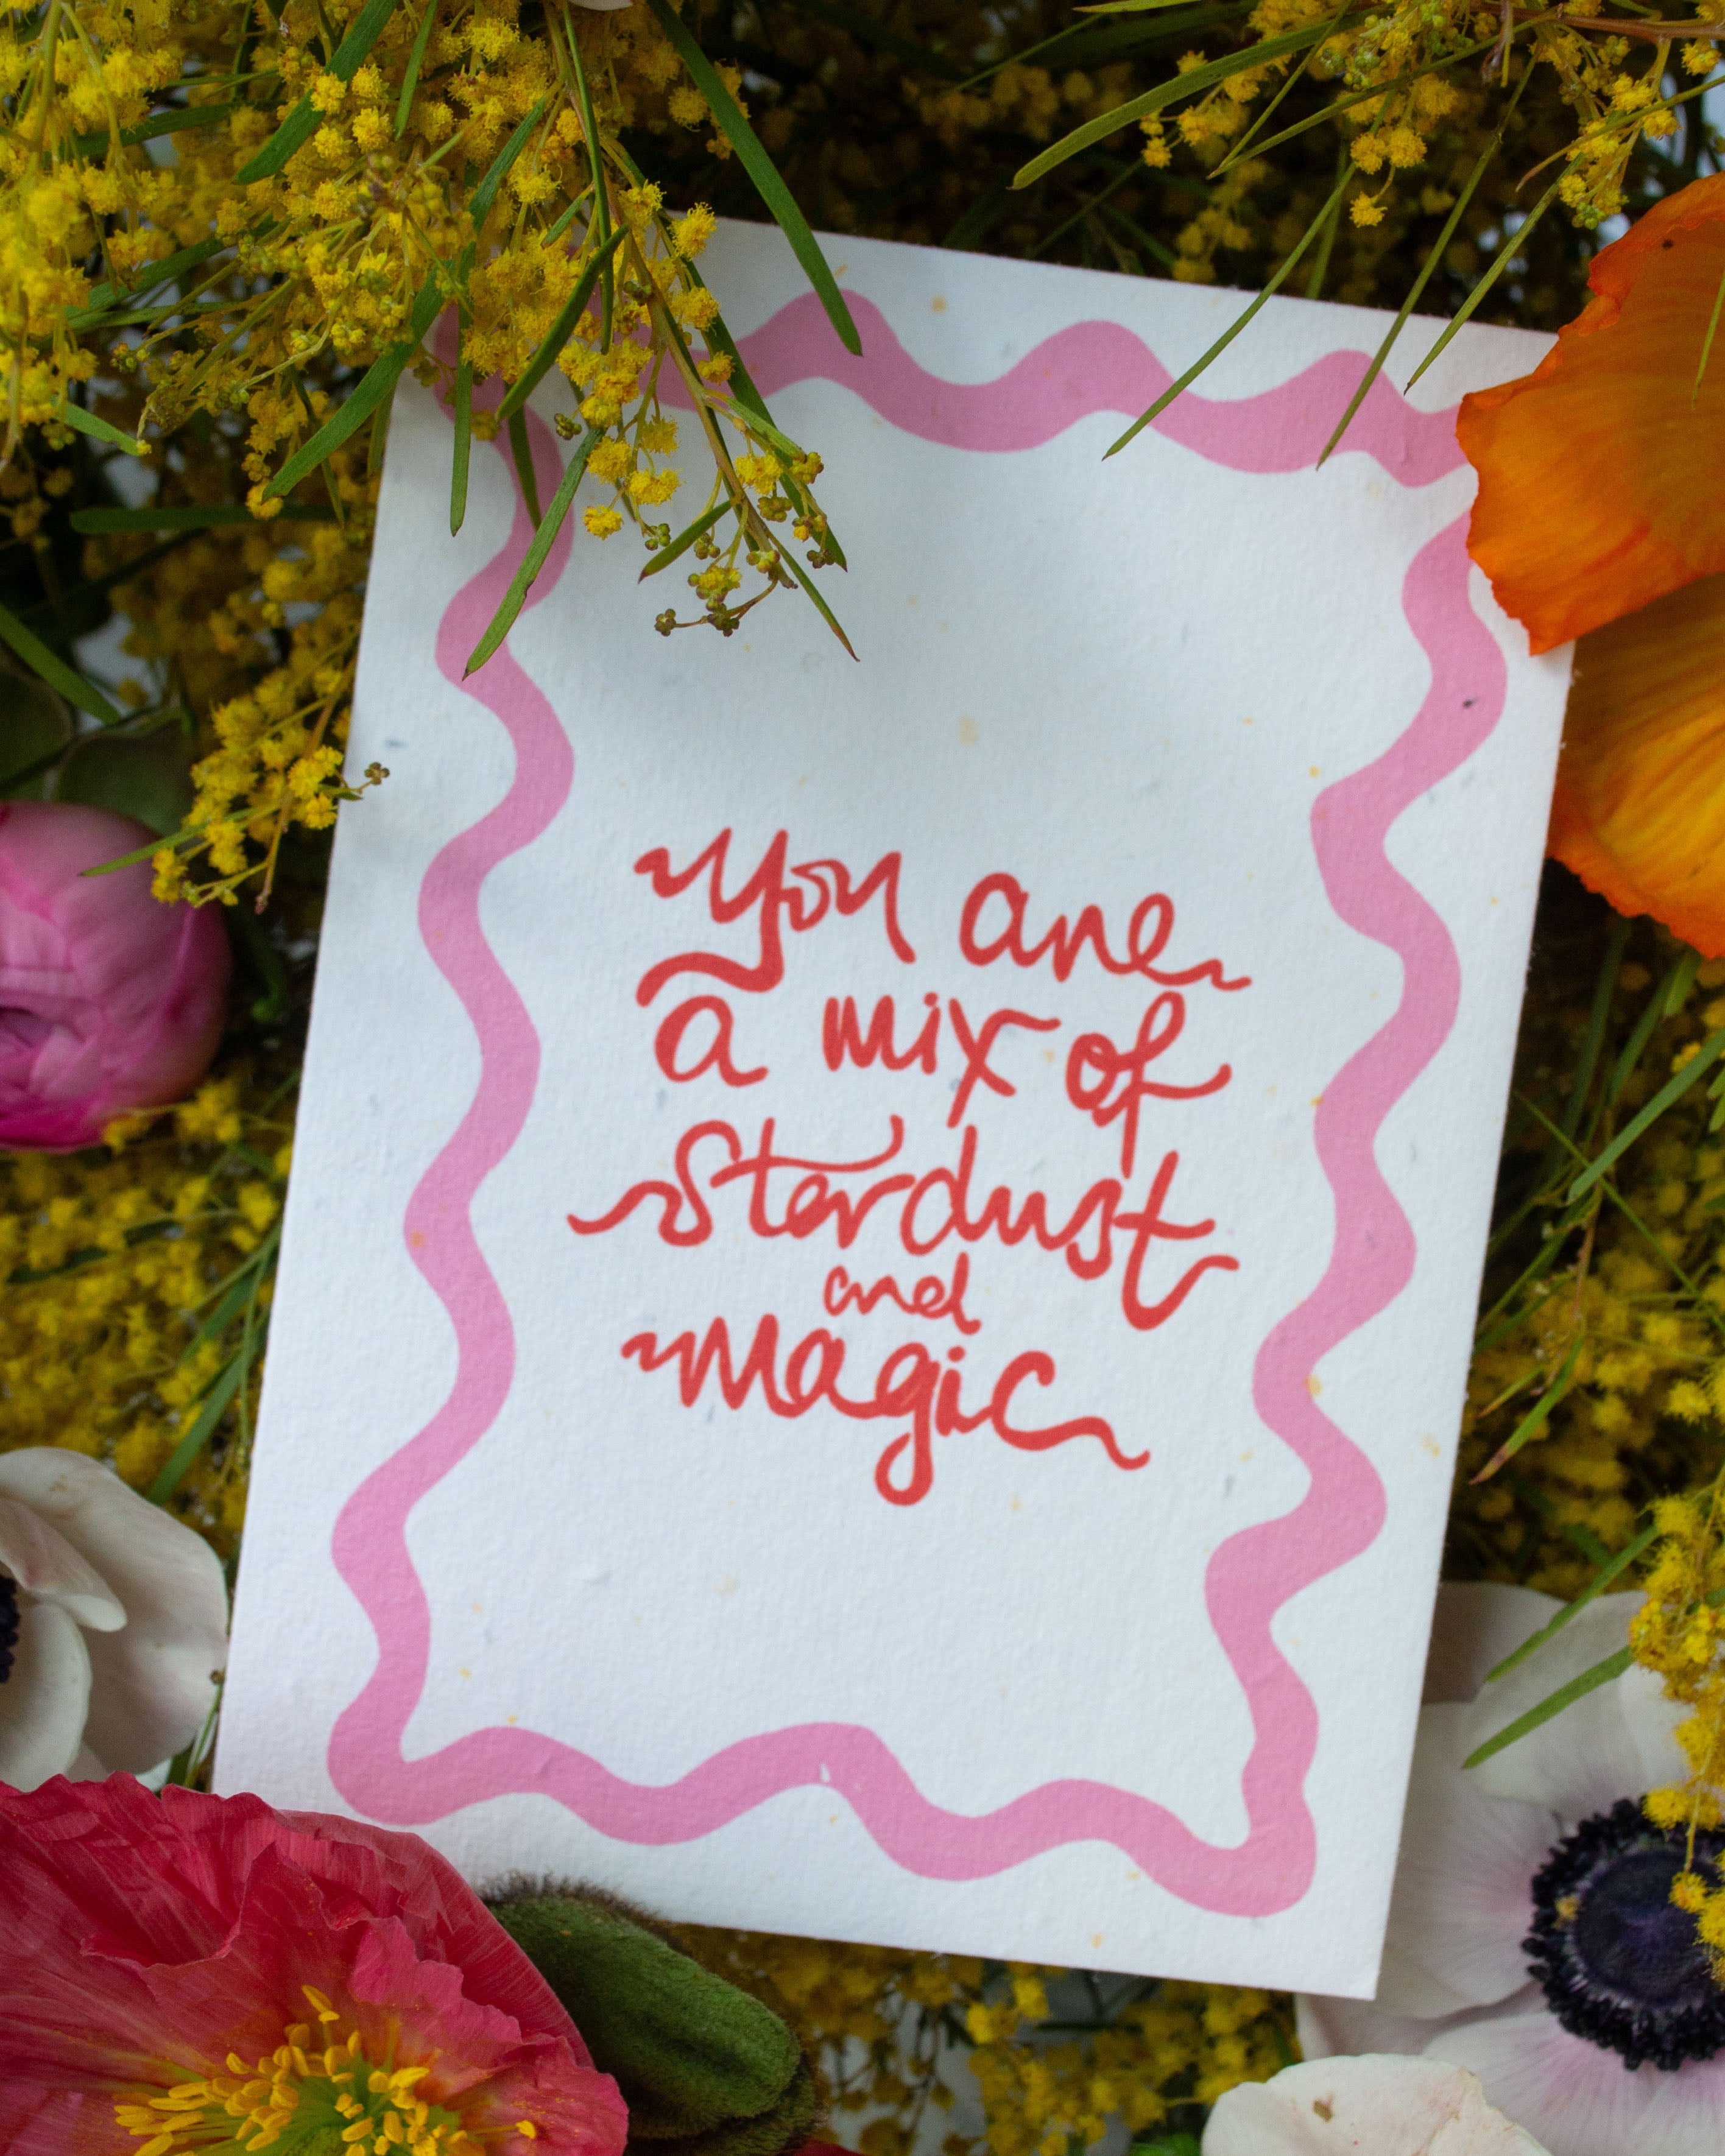 You are
a mix of
Stardust
and
Magic